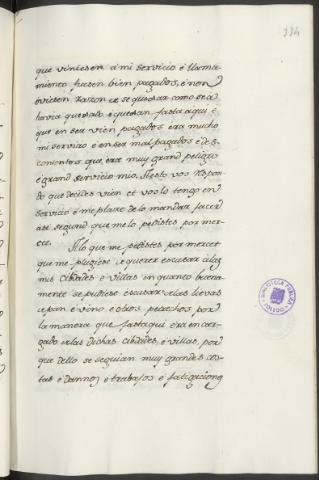 334
que viniesen á mi servicio é llama-
miento fuesen bien pagados, é non
oviesen razon de se quexar como se a-
havia quexado é quexan fasta aqui é
que en ser vien pagados era mucho
mi servicio é en ser mal pagados é des-
contentos que era muy grand peligro
é grand deservicio mio. A esto vos respon-
do que decides vien et vos lo tengo en
servicio é me place de lo mandar facer
asi segund que me lo pedistes por mer-
ced.
A lo que me pedistes por mercet
que me plugiese de querer escusar á las
mis cibdades é villas en quanto buena-
mente se pudiese escusar de las lievas
de pan é vino é otros pertrechos por
la manera que fasta qui era en car-
gado á las dichas cibdades, é villas, por
que dello se seguian muy grandes cos-
tas é dannos é trabajos é fatigaciones
BIBLIOTECA PUBLICA
TOLEDO